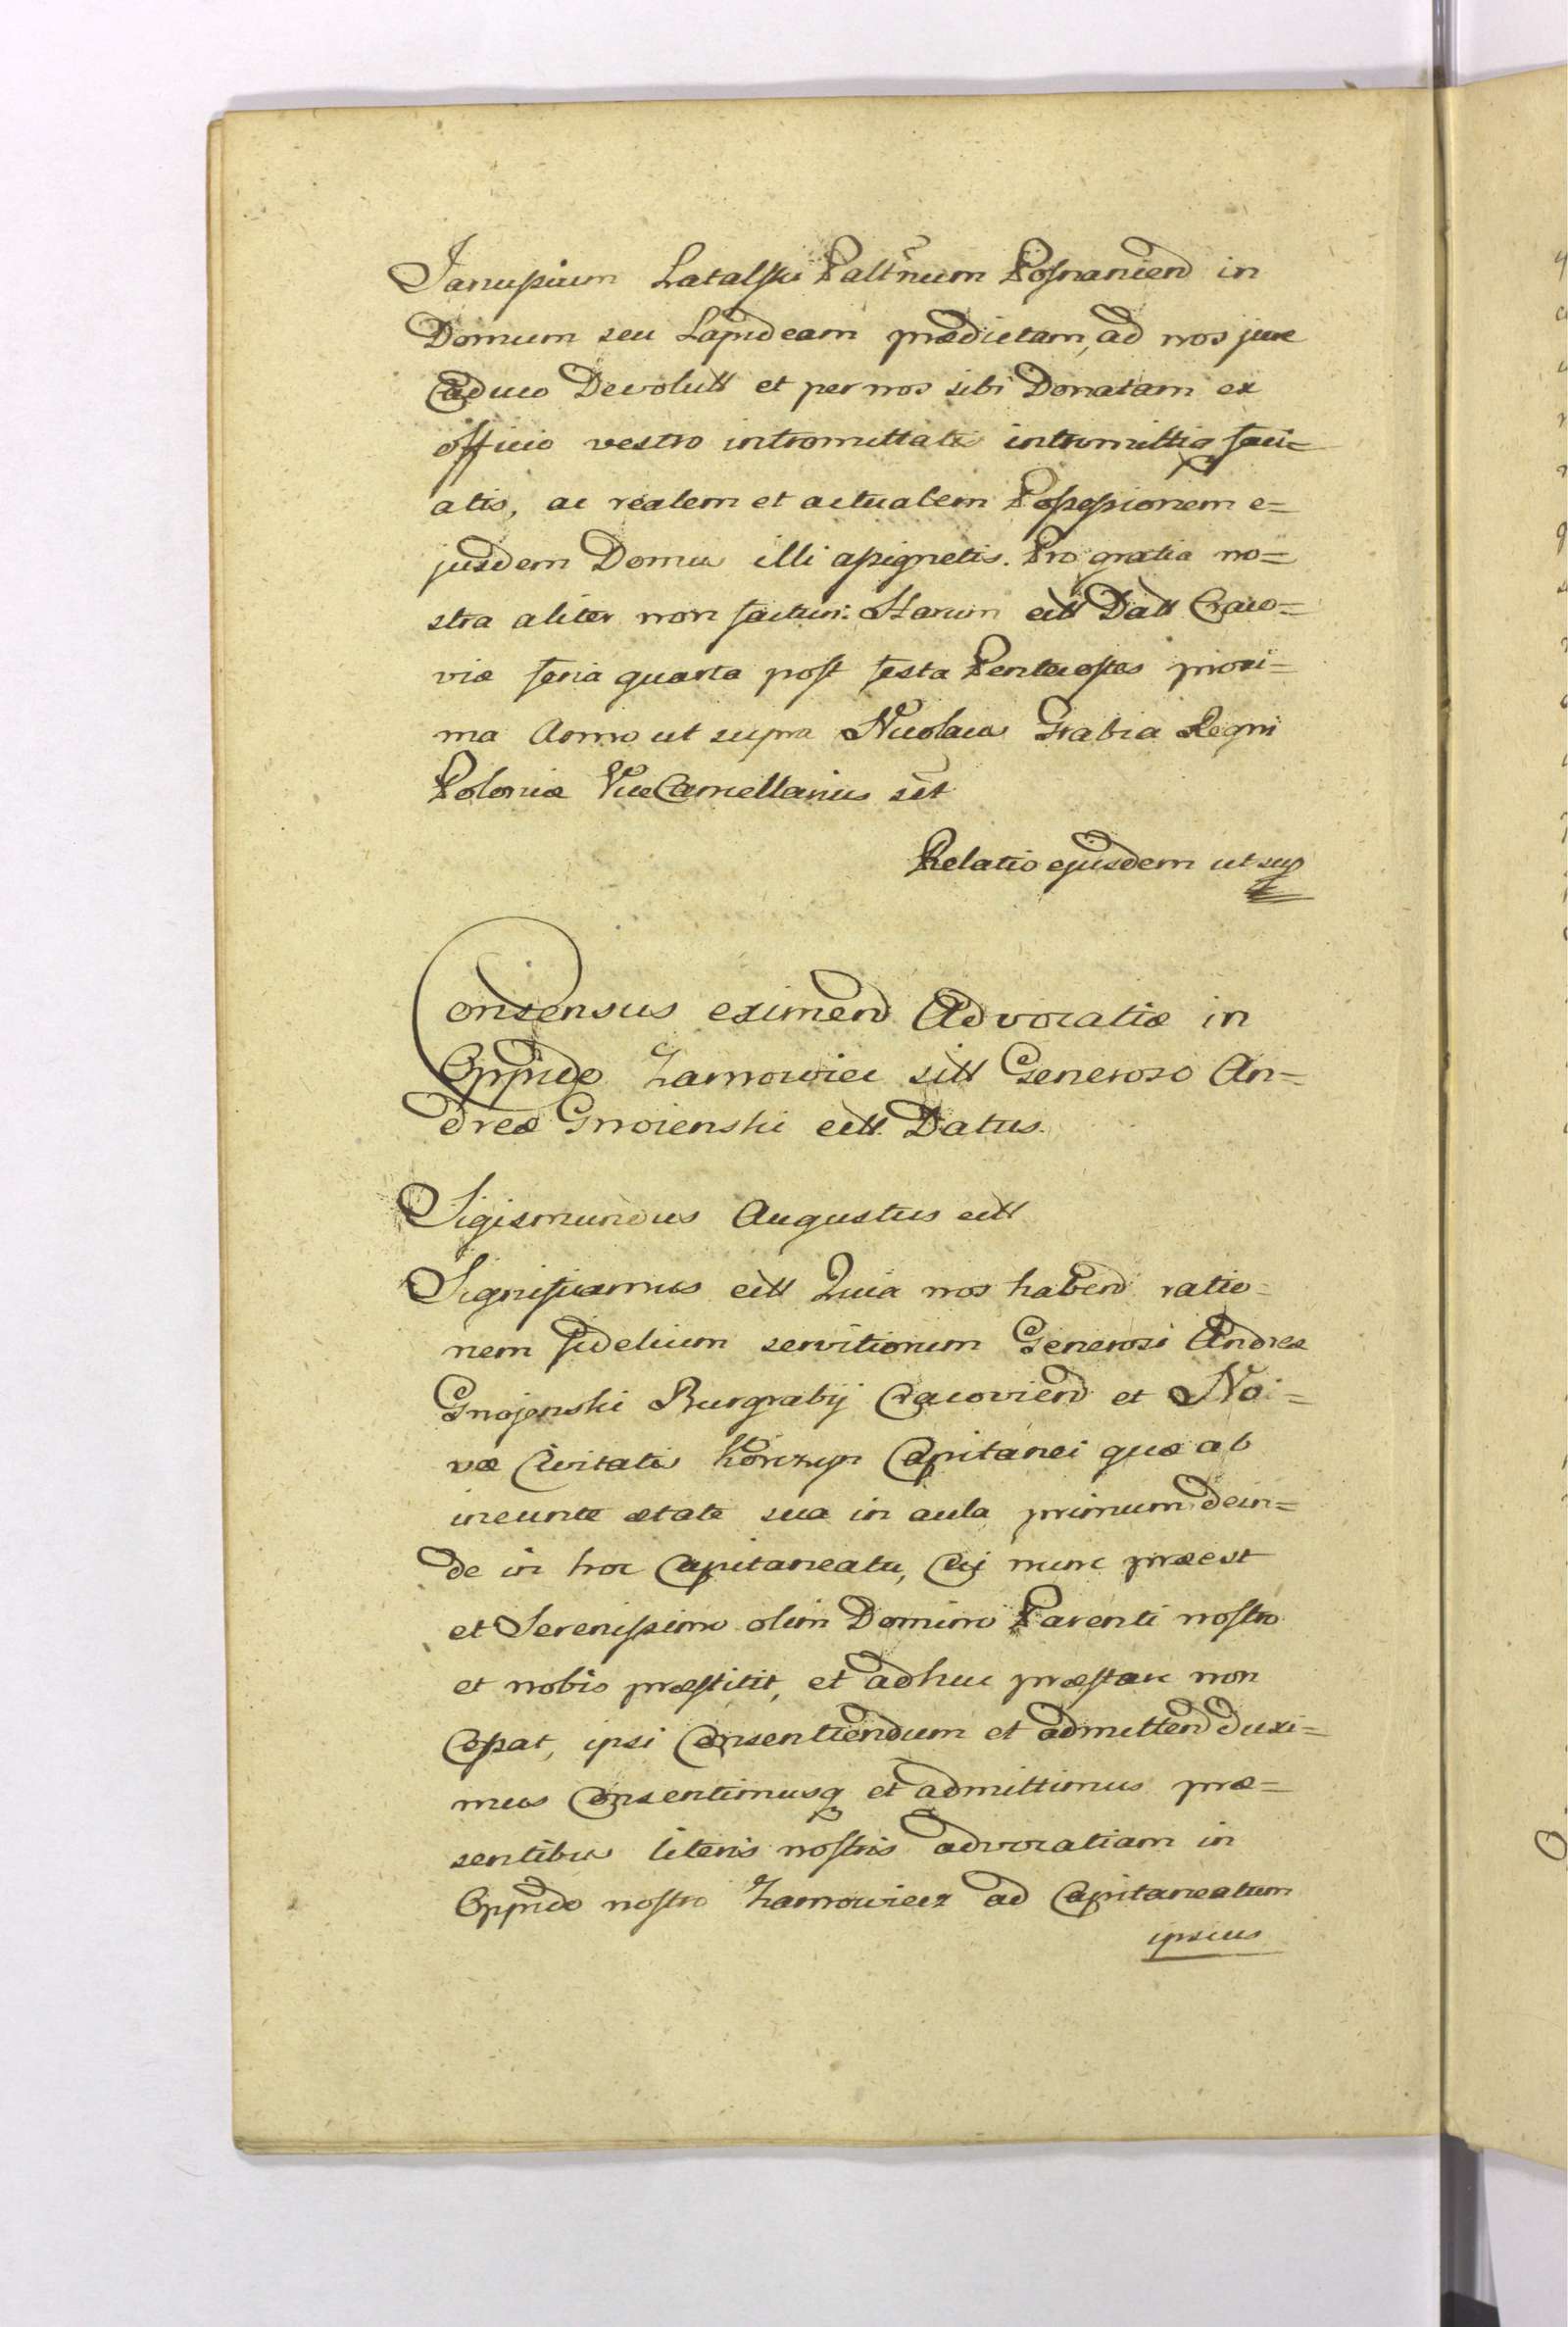 Janussium Latalski Paltñum Posnaniend in
Domum seu Lapideam prædictam, ad nos jure
Caduco Devolutt et per nos sibi Donatam ex
officio vestro intromittatis intromittiq faci=
atis, ac realem et actualem Possessionem e=
jusdem Domus illi assignetis. Pro gratia no=
stra aliter non facturi. Harum ett Datt Craco=
viæ feria quarta post festa Pentecostes proxi=
ma Anno ut supra Nicolaus Grabia Regni
Poloniæ ViceCancellarius sst
Relatio ejusdem ut sup
Consensus eximend Advocatiæ in
Oppido Zarnowiec sitt Generoso An=
dreæ Gnoienski ett Datus.
Sigismundus Augustus ett
Significamus ett Quia nos habend ratio=
nem fidelium servitiorum Generosi Andreæ
Gnojenski Burgrabij Cracoviend et No=
væ Civitatis Korczyn Capitanei quæ ab
ineunte ætate sua in aula primum dein=
de in hoc Capitaneatu, Cui nunc præest
et Serenissimo olim Domino Parenti nostro
et nobis præstitit, et adhuc præstare non
Cessat, ipsi Consentiendum et admittend duxi=
mus Consentimusq et admittimus præ=
sentibus literis nostris advocatiam in
Oppido nostro Zarnowiecz ad Capitaneatum
ipsius